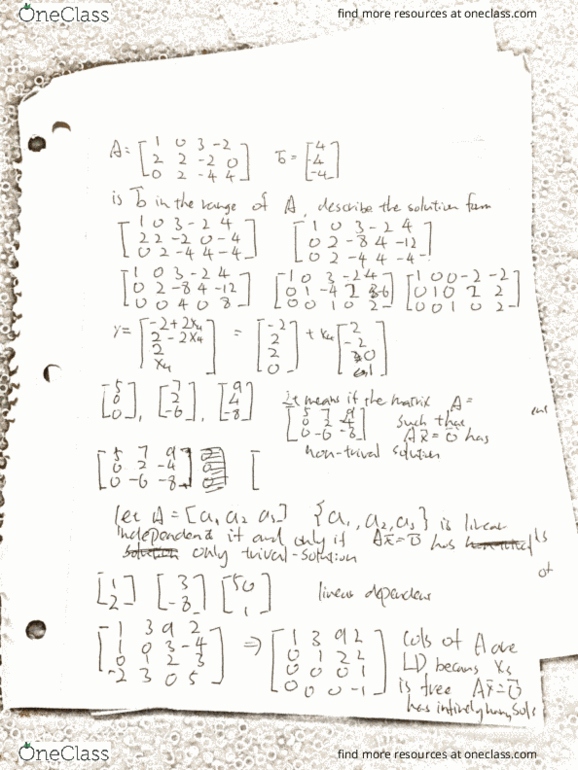 OneClass
find more resources at oneclass.com
A = [1 0 3 -2
2 2 -2 0
0 2 -4 4] b = [4
-4
-4]
is b in the range of A, describe the solution form
[1 0 3 -2 4
2 2 -2 0 -4
0 2 -4 4 -4] [1 0 3 -2 4
0 2 -8 4 -12
0 2 -4 4 -4]
[1 0 3 -2 4
0 2 -8 4 -12
0 0 4 0 8] [1 0 3 -2 4
0 1 -4 2 -6
0 0 1 0 2] [1 0 0 -2 -2
0 1 0 2 2
0 0 1 0 2]
[-2+2x4
2-2x4
2
x4] = [-2
2
2
0] + x4 [2
-2
0
1]
[5
0
0], [7
2
-6], [9
4
-8]
It means if the matrix A =
[5 7 9
0 2 -4
0 -6 -8] such that
Ax = 0 has
non-trival solution
[5 7 9
0 2 -4
0 -6 -8] [
let A = [a1 a2 a3] {a1, a2, a3} is linear
independent if and only if Ax = 0 has
solution only trival-solution
[1
2] [3
-3] [50
1] linear dependent
[-1 3 9 2
1 0 3 -4
0 1 2 3
-2 3 0 5] ⇒ [1 3 9 2
0 1 2 2
0 0 0 1
0 0 0 -1] Cols of A are
LD becaus x3
is free Ax = 0
has infinitely many sols
OneClass
find more resources at oneclass.com